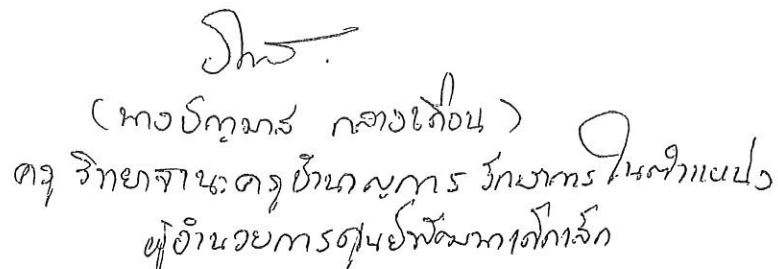 (นางจิฑามาส กลางเถื่อน)
ครู วิทยาฐานะครูชำนาญการ รักษาการในตำแหน่ง
ผู้อำนวยการศูนย์พัฒนาเด็กเล็ก